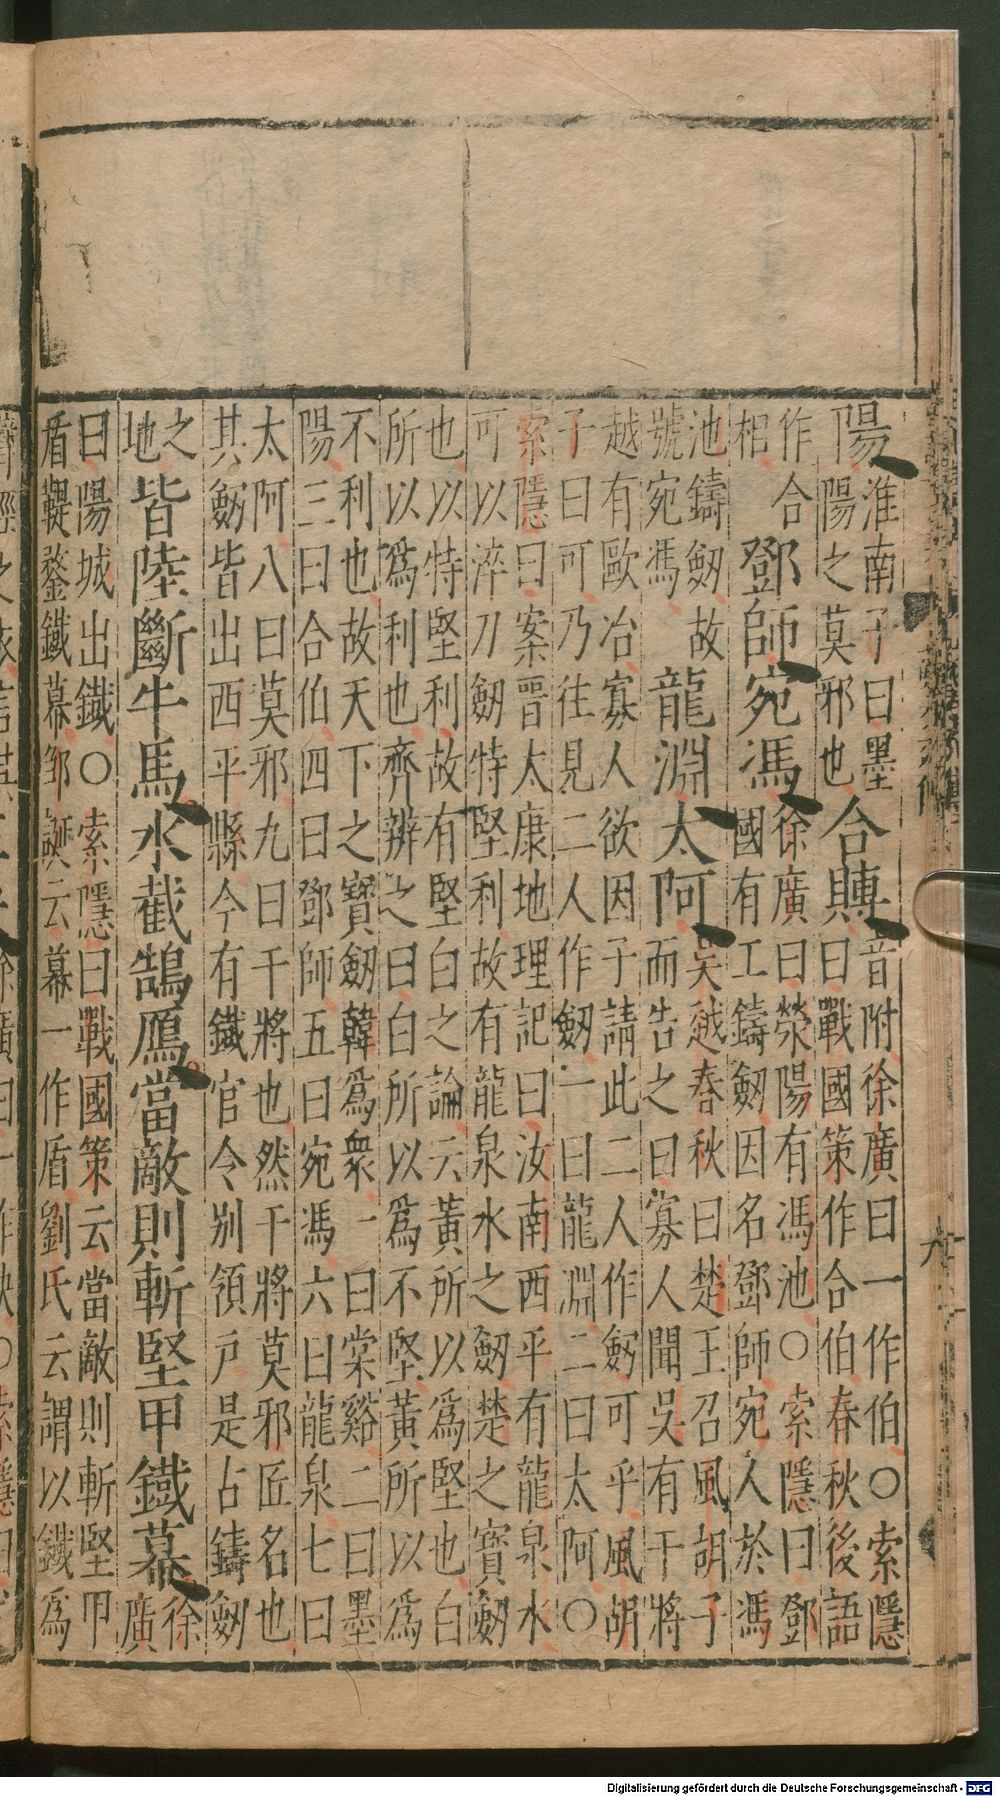 陽
淮南子曰墨
陽之莫邪也
合賻
音附徐廣曰一作伯〇索隱
曰戰國策作合伯春秋後語
作合
相
鄧師宛馮
徐廣曰滎陽有馮池〇索隱曰鄧
國有工鑄劔因名鄧師宛人於馮
池鑄劔故
號宛馮
龍淵太阿
吳越春秋曰楚王召風胡子
而告之曰寡人聞吳有干將
越有歐冶寡人欲因子請此二人作劔可乎風胡
子曰可乃往見二人作劔一曰龍淵二曰太阿〇
索隱曰案晉太康地理記曰汝南西平有龍泉水
可以淬刀劔特堅利故有龍泉水之劔楚之寶劔
也以特堅利故有堅白之論云黃所以爲堅也白
所以爲利也齊辨之曰白所以爲不堅黃所以爲
不利也故天下之寶劔韓爲衆一曰棠谿二曰墨
陽三曰合伯四曰鄧師五曰宛馮六曰龍泉七曰
太阿八曰莫邪九曰干將也然干將莫邪匠名也
其劔皆出西平縣今有鐵官令別領戶是占鑄劔
之
地
皆陸斷牛馬水截鵠鴈當敵則斬堅甲鐵幕
徐
廣
曰陽城出鐵〇索隱曰戰國策云當敵則斬堅甲
盾鞮鍪鐵幕鄒誕云幕一作盾劉氏云謂以鐵爲
六
Digitalisierung gefördert durch die Deutsche Forschungsgemeinschaft - DFG